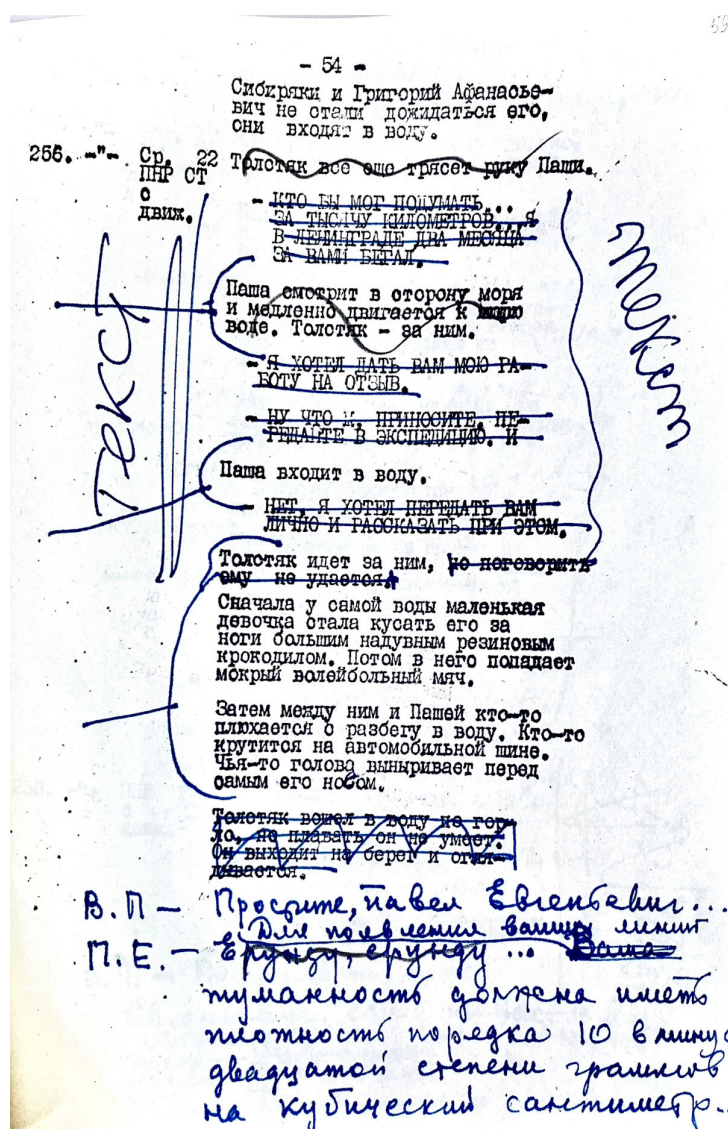 - 54 -
Сибиряки и Григорий Афанасье-
вич не стали дожидаться его,
они входят в воду.
256. -"- Ср. 22
ПНР СТ
с
движ.
Толстяк все еще трясет руку Паши.
- КТО БЫ МОГ ПОДУМАТЬ...
ЗА ТЫСЯЧУ КИЛОМЕТРОВ... Я
В ЛЕНИНГРАДЕ ДВА МЕСЯЦА
ЗА ВАМИ БЕГАЛ.
Паша смотрит в сторону моря
и медленно двигается к
воде. Толстяк - за ним.
- Я ХОТЕЛ ДАТЬ ВАМ МОЮ РА-
БОТУ НА ОТЗЫВ.
- НУ ЧТО Ж, ПРИНОСИТЕ, ПЕ-
РЕДАЙТЕ В ЭКСПЕДИЦИЮ. И
Паша входит в воду.
- НЕТ, Я ХОТЕЛ ПЕРЕДАТЬ ВАМ
ЛИЧНО И РАССКАЗАТЬ ПРИ ЭТОМ.
Толстяк идет за ним, но поговорить
ему не удается.
Сначала у самой воды маленькая
девочка стала кусать его за
ноги большим надувным резиновым
крокодилом. Потом в него попадает
мокрый волейбольный мяч.
Затем между ним и Пашей кто-то
плюхается с разбегу в воду. Кто-то
крутится на автомобильной шине.
Чья-то голова выныривает перед
самым его носом.
Толстяк вошел в воду по гор-
ло, но плавать он не умеет.
Он выходит на берег и огля-
дывается.
текст
текст
В.П — Простите, Павел Евгеньевич...
Для появления ваших линий
П.Е. — Ерунду, ерунду... Ваша
туманность должна иметь
плотность порядка 10 в минус
двадцатой степени граммов
на кубический сантиметр...